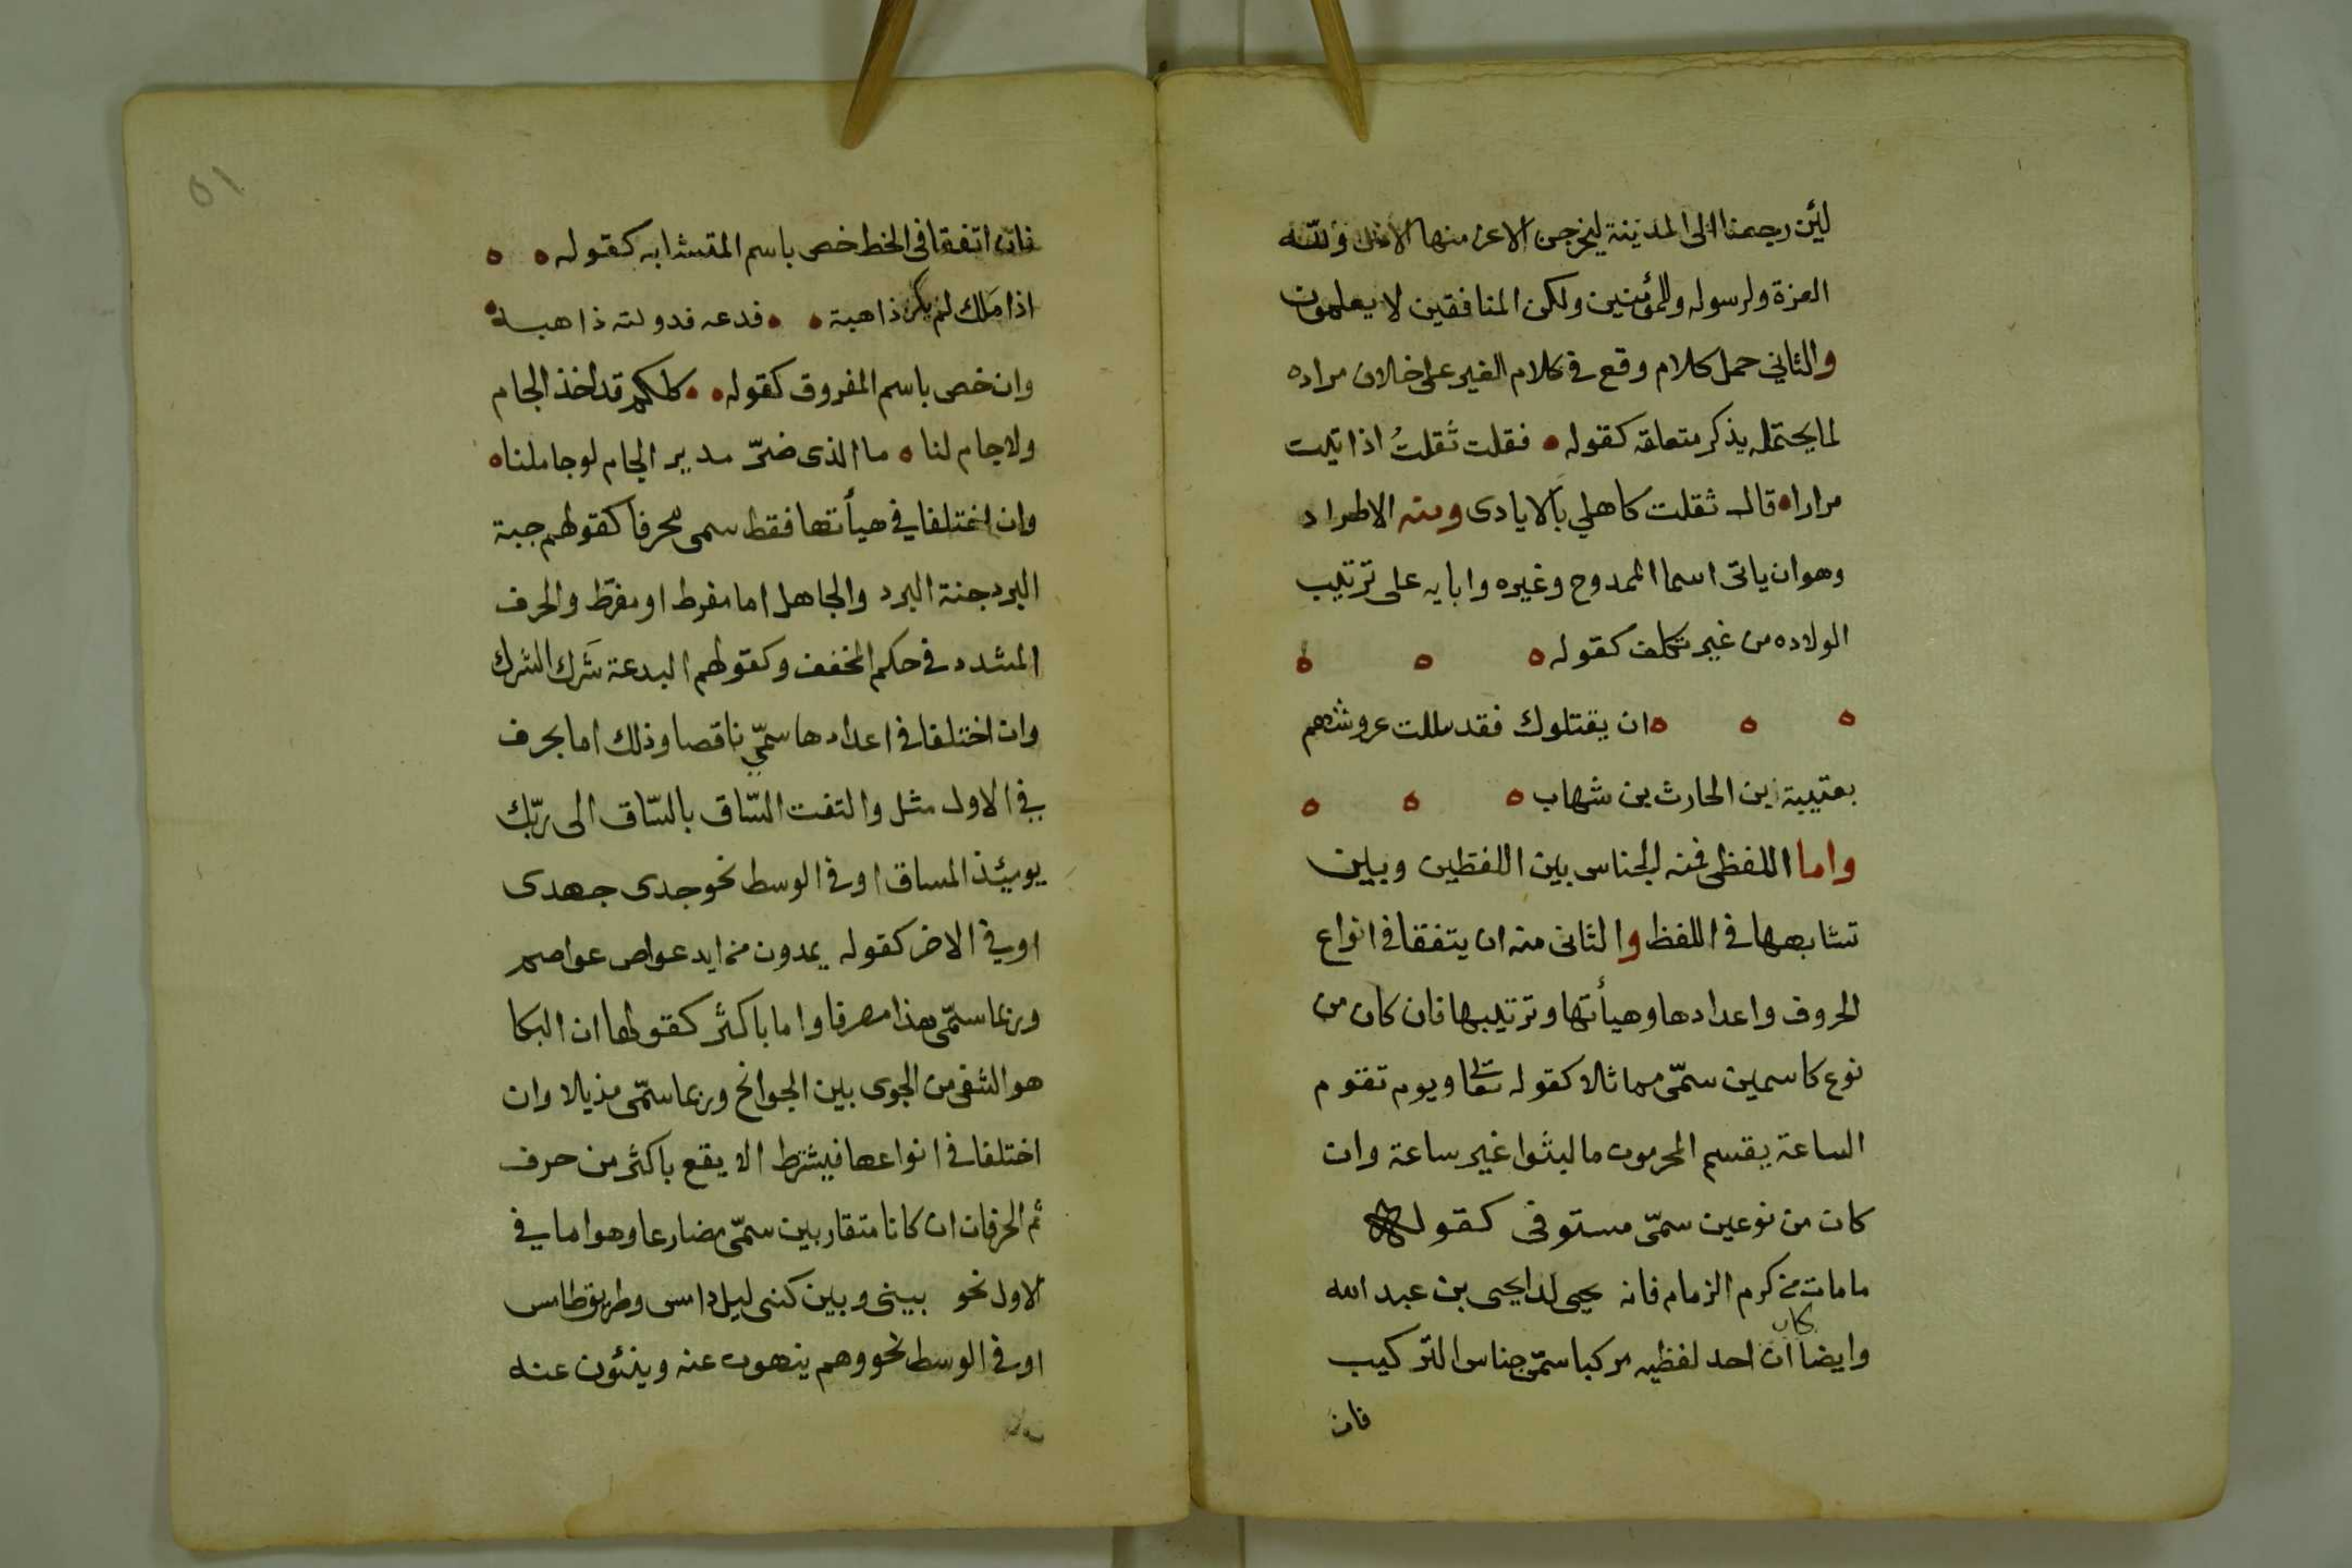 لئن رجعنا الى المدينة ليخرجن الاعز منها الاذل ولله
العزة ولرسوله وللمؤمنين ولكن المنافقين لا يعلمون
والثاني حمل كلام وقع في كلام الغير على خلاف مراده
لما يحتمله بذكر متعلقه كقوله ه فقلت ثقلتُ اذا تيت
مرارا ه قال ثقلت كاهلي بالايادى ومنه الاطراد
وهو ان ياتى اسما الممدوح وغيره وابايه على ترتيب
الولاده من غير تكلف كقوله ه ه ه
ه ه ه ان يقتلوك فقد ثللت عروشهم
بعتيبة بن الحارث بن شهاب ه ه ه
واما اللفظى فمنه الجناس بين اللفظين وبين
تشابهها في اللفظ والثانى منه ان يتفقا في انواع
الحروف واعدادها وهيأتها وترتيبها فان كان من
نوع كاسمين سمّى مماثلا كقوله تعالى ويوم تقوم
الساعة يقسم المجرمون ما لبثوا غير ساعة وان
كان من نوعين سمّى مستوفى كقوله
ما مات من كرم الزمام فانه يحيى لدا يحيى بن عبد الله
وايضا ان كان احد لفظيه مركبا سمّى جناس التركيب
فان
٥١
فان اتفقا في الخط خص باسم المتشابه كقوله ه ه
اذا مَلك لم يكن ذا هبة ه ه فدعه فدولته ذاهبة ه
وان خص باسم المفروق كقوله ه ه كلكم قد اخذ الجام
ولا جام لنا ه ما الذى ضرّ مدير الجام لو جاملنا ه
وان اختلفا في هيأتها فقط سمى محرفا كقولهم جبة
البرد جنة البرد والجاهل اما مفرط او مفرّط والحرف
المشدد في حكم المخفف وكقولهم البدعة شَرك الشرك
وان اختلفا في اعدادها سمّي ناقصا وذلك اما بحرف
في الاول مثل والتفت السّاق بالسّاق الى ربّك
يومئذ المساق او في الوسط نحو جدى جهدى
او في الاخر كقوله يمدون من ايد عواص عواصم
وربما سمّى هذا مصرفا واما باكثر كقولها ان البكا
هو الشفى من الجوى بين الجوانح وربما سمّى مذيلا وان
اختلفا في انواعها فيشترط الا يقع باكثر من حرف
ثم الحرفان ان كانا متقاربين سمّى مضارعا وهو اما في
الاول نحو بينى وبين كنى ليل دامس وطريق طامس
او في الوسط نحو وهم ينهون عنه وينئون عنه